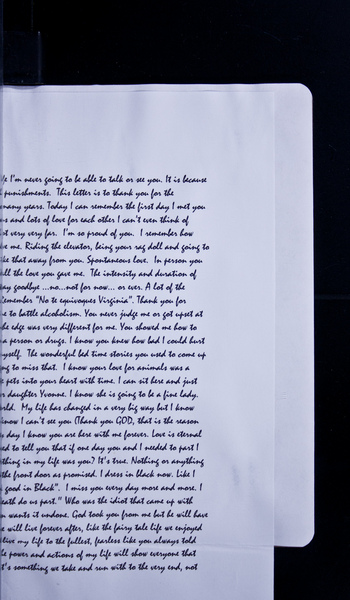 I'm never going to be able to talk or see you. It is because
punishments. This letter is to thank you for the
many years. Today I can remember the first day I met you
and lots of love for each other I can't even think of
very very far. I'm so proud of you. I remember how
me. Riding the elevator, being your rag doll and going to
like that away from you. Spontaneous love. In person you
all the love you gave me. The intensity and duration of
say goodbye ...no...not for now... or ever. A lot of the
Remember "No te equivoques Virginia". Thank you for
me to battle alcoholism. You never judge me or got upset at
the edge was very different for me. You showed me how to
a person or drugs. I know you knew how bad I could hurt
myself. The wonderful bed time stories you used to come up
ng to miss that. I know your love for animals was a
pets into your heart with time. I can sit here and just
r daughter Yvonne. I know she is going to be a fine lady.
orld. My life has changed in a very big way but I know
know I can't see you (Thank you GOD, that is the reason
day I know you are here with me forever. Love is eternal
ed to tell you that if one day you and I needed to part I
thing in my life was you? It's true. Nothing or anything
the front door as promised. I dress in black now. Like I
good in Black". I miss you every day more and more. I
eath do us part." Who was the idiot that came up with
wants it undone. God took you from me but he will have
e will live forever after, like the fairy tale life we enjoyed
live my life to the fullest, fearless like you always told
he power and actions of my life will show everyone that
it's something we take and run with to the very end, not